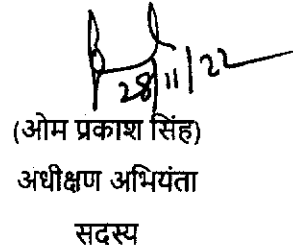 28/11/22
(ओम प्रकाश सिंह)
अधीक्षण अभियंता
सदस्य